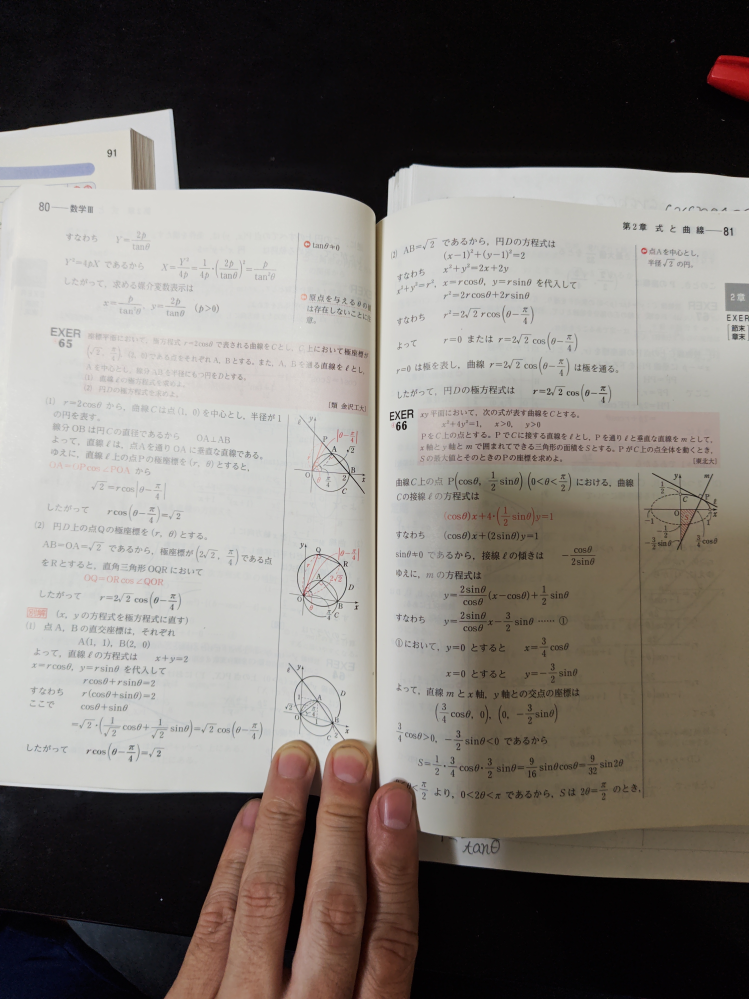 91
80 数学Ⅲ
すなわち Y=2p/tanθ
tanθ≠0
Y²=4pX であるから X=Y²/4p=1/4p・(2p/tanθ)²=p/tan²θ
したがって、求める媒介変数表示は
x=p/tan²θ, y=2p/tanθ (p>0)
原点を与えるθの値は存在しないことに注意。
EXER 65
座標平面において、極方程式 r=2cosθ で表される曲線をCとし、C上において極座標が
である点をそれぞれ A, B とする。また、A, B を通る直線をℓとし、
Aを中心とし、線分ABを半径にもつ円をDとする。
(1) 直線ℓの極方程式を求めよ。
(2) 円Dの極方程式を求めよ。
[類 金沢工大]
(1) r=2cosθ から、曲線Cは点(1, 0)を中心とし、半径が1
の円を表す。
線分OBは円Cの直径であるから OA⊥AB
よって、直線ℓは、点Aを通りOAに垂直な直線である。
ゆえに、直線ℓ上の点Pの極座標を(r, θ)とすると、
OA=OPcos∠POA から
√2=rcos|θ-π/4|
したがって rcos(θ-π/4)=√2
(2) 円D上の点Qの極座標を(r, θ)とする。
AB=OA=√2 であるから、極座標が(2√2, π/4)である点
をRとすると、直角三角形OQRにおいて
OQ=ORcos∠QOR
したがって r=2√2 cos(θ-π/4)
別解 (x, yの方程式を極方程式に直す)
(1) 点A, Bの直交座標は、それぞれ
A(1, 1), B(2, 0)
よって、直線ℓの方程式は x+y=2
x=rcosθ, y=rsinθ を代入して
rcosθ+rsinθ=2
すなわち r(cosθ+sinθ)=2
ここで cosθ+sinθ
=√2・(1/√2 cosθ+1/√2 sinθ)=√2 cos(θ-π/4)
したがって rcos(θ-π/4)=√2
第2章 式と曲線 81
(2) AB=√2 であるから、円Dの方程式は
点Aを中心とし、半径√2の円。
(x-1)²+(y-1)²=2
すなわち x²+y²=2x+2y
x²+y²=r², x=rcosθ, y=rsinθ を代入して
r²=2rcosθ+2rsinθ
すなわち r²=2√2 rcos(θ-π/4)
よって r=0 または r=2√2 cos(θ-π/4)
r=0 は極を表し、曲線 r=2√2 cos(θ-π/4) は極を通る。
したがって、円Dの極方程式は r=2√2 cos(θ-π/4)
2章
EXER
[節末
章末]
EXER 66
xy平面において、次の式が表す曲線をCとする。
x²+4y²=1, x>0, y>0
PをC上の点とする。PでCに接する直線をℓとし、Pを通りℓと垂直な直線をmとして、
x軸とy軸とmで囲まれてできる三角形の面積をSとする。PがC上の点全体を動くとき、
Sの最大値とそのときのPの座標を求めよ。
[東北大]
曲線C上の点 P(cosθ, 1/2 sinθ) (0<θ<π/2) における、曲線
Cの接線ℓの方程式は
(cosθ)x+4・(1/2 sinθ)y=1
すなわち (cosθ)x+(2sinθ)y=1
sinθ≠0 であるから、接線ℓの傾きは -cosθ/2sinθ
ゆえに、mの方程式は
y=2sinθ/cosθ (x-cosθ)+1/2 sinθ
すなわち y=2sinθ/cosθ x-3/2 sinθ …… ①
①において、y=0 とすると x=3/4 cosθ
x=0 とすると y=-3/2 sinθ
よって、直線mとx軸、y軸との交点の座標は
(3/4 cosθ, 0), (0, -3/2 sinθ)
3/4 cosθ>0, -3/2 sinθ<0 であるから
S=1/2・3/4 cosθ・3/2 sinθ=9/16 sinθcosθ=9/32 sin2θ
<π/2 より、0<2θ<π であるから、Sは 2θ=π/2 のとき、
tanθ